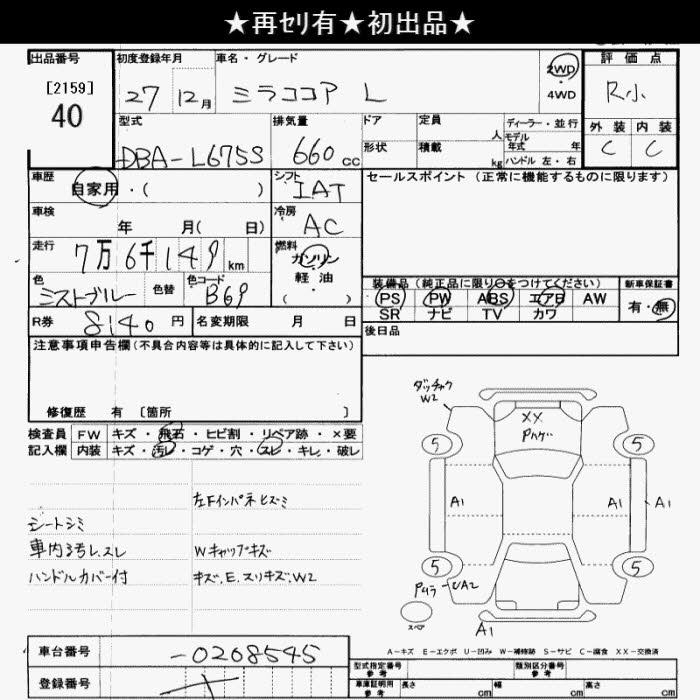 ★再セリ有★初出品★
出品番号 初度登録年月 車名・グレード 評価点
[2159]
40
27 12月 ミラココア L 2WD 4WD R小
型式 排気量 ドア 定員 人 ディーラー・並行 外装 内装
モデル年式 年
DBA-L675S 660cc 形状 積載 kg ハンドル 左・右 C C
車歴 自家用・( ) シフト IAT セールスポイント(正常に機能するものに限ります)
車検 年 月( 日) 冷房 AC
走行 7万6千149km 燃料 ガソリン 軽油 ・( )
色 ミストブルー 色替 色コード B69
装備品(純正品に限り○をつけてください) 新車保証書
PS PW ABS エアB AW 有・無
SR ナビ TV カワ
R券 8140円 名変期限 月 日 後日品
注意事項申告欄(不具合内容等は具体的に記入して下さい)
修復歴 有 [箇所 ]
検査員 FW キズ・飛石・ヒビ割・リペア跡・×要
記入欄 内装 キズ・汚レ・コゲ・穴・スレ・キレ・破レ
左Fインパネヒズミ
シートシミ
車内ヨゴレ、スレ Wキャップキズ
ハンドルカバー付 キズ、E、スリキズ、W2
W2
XX
Pハゲ
5 5
A1 A1 A1
5 5
UA2
スペア
A1
A-キズ E-エクボ U-凹み W-補修跡 S-サビ C-腐食 XX-交換済
車台番号 -0208545
登録番号
型式指定番号 参考 類別区分番号 参考
車庫証明用 参考 長さ cm 幅 cm 高さ cm